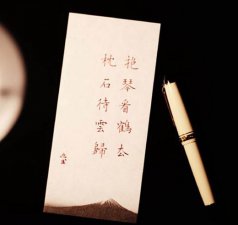 抱琴看鶴去
枕石待雲歸